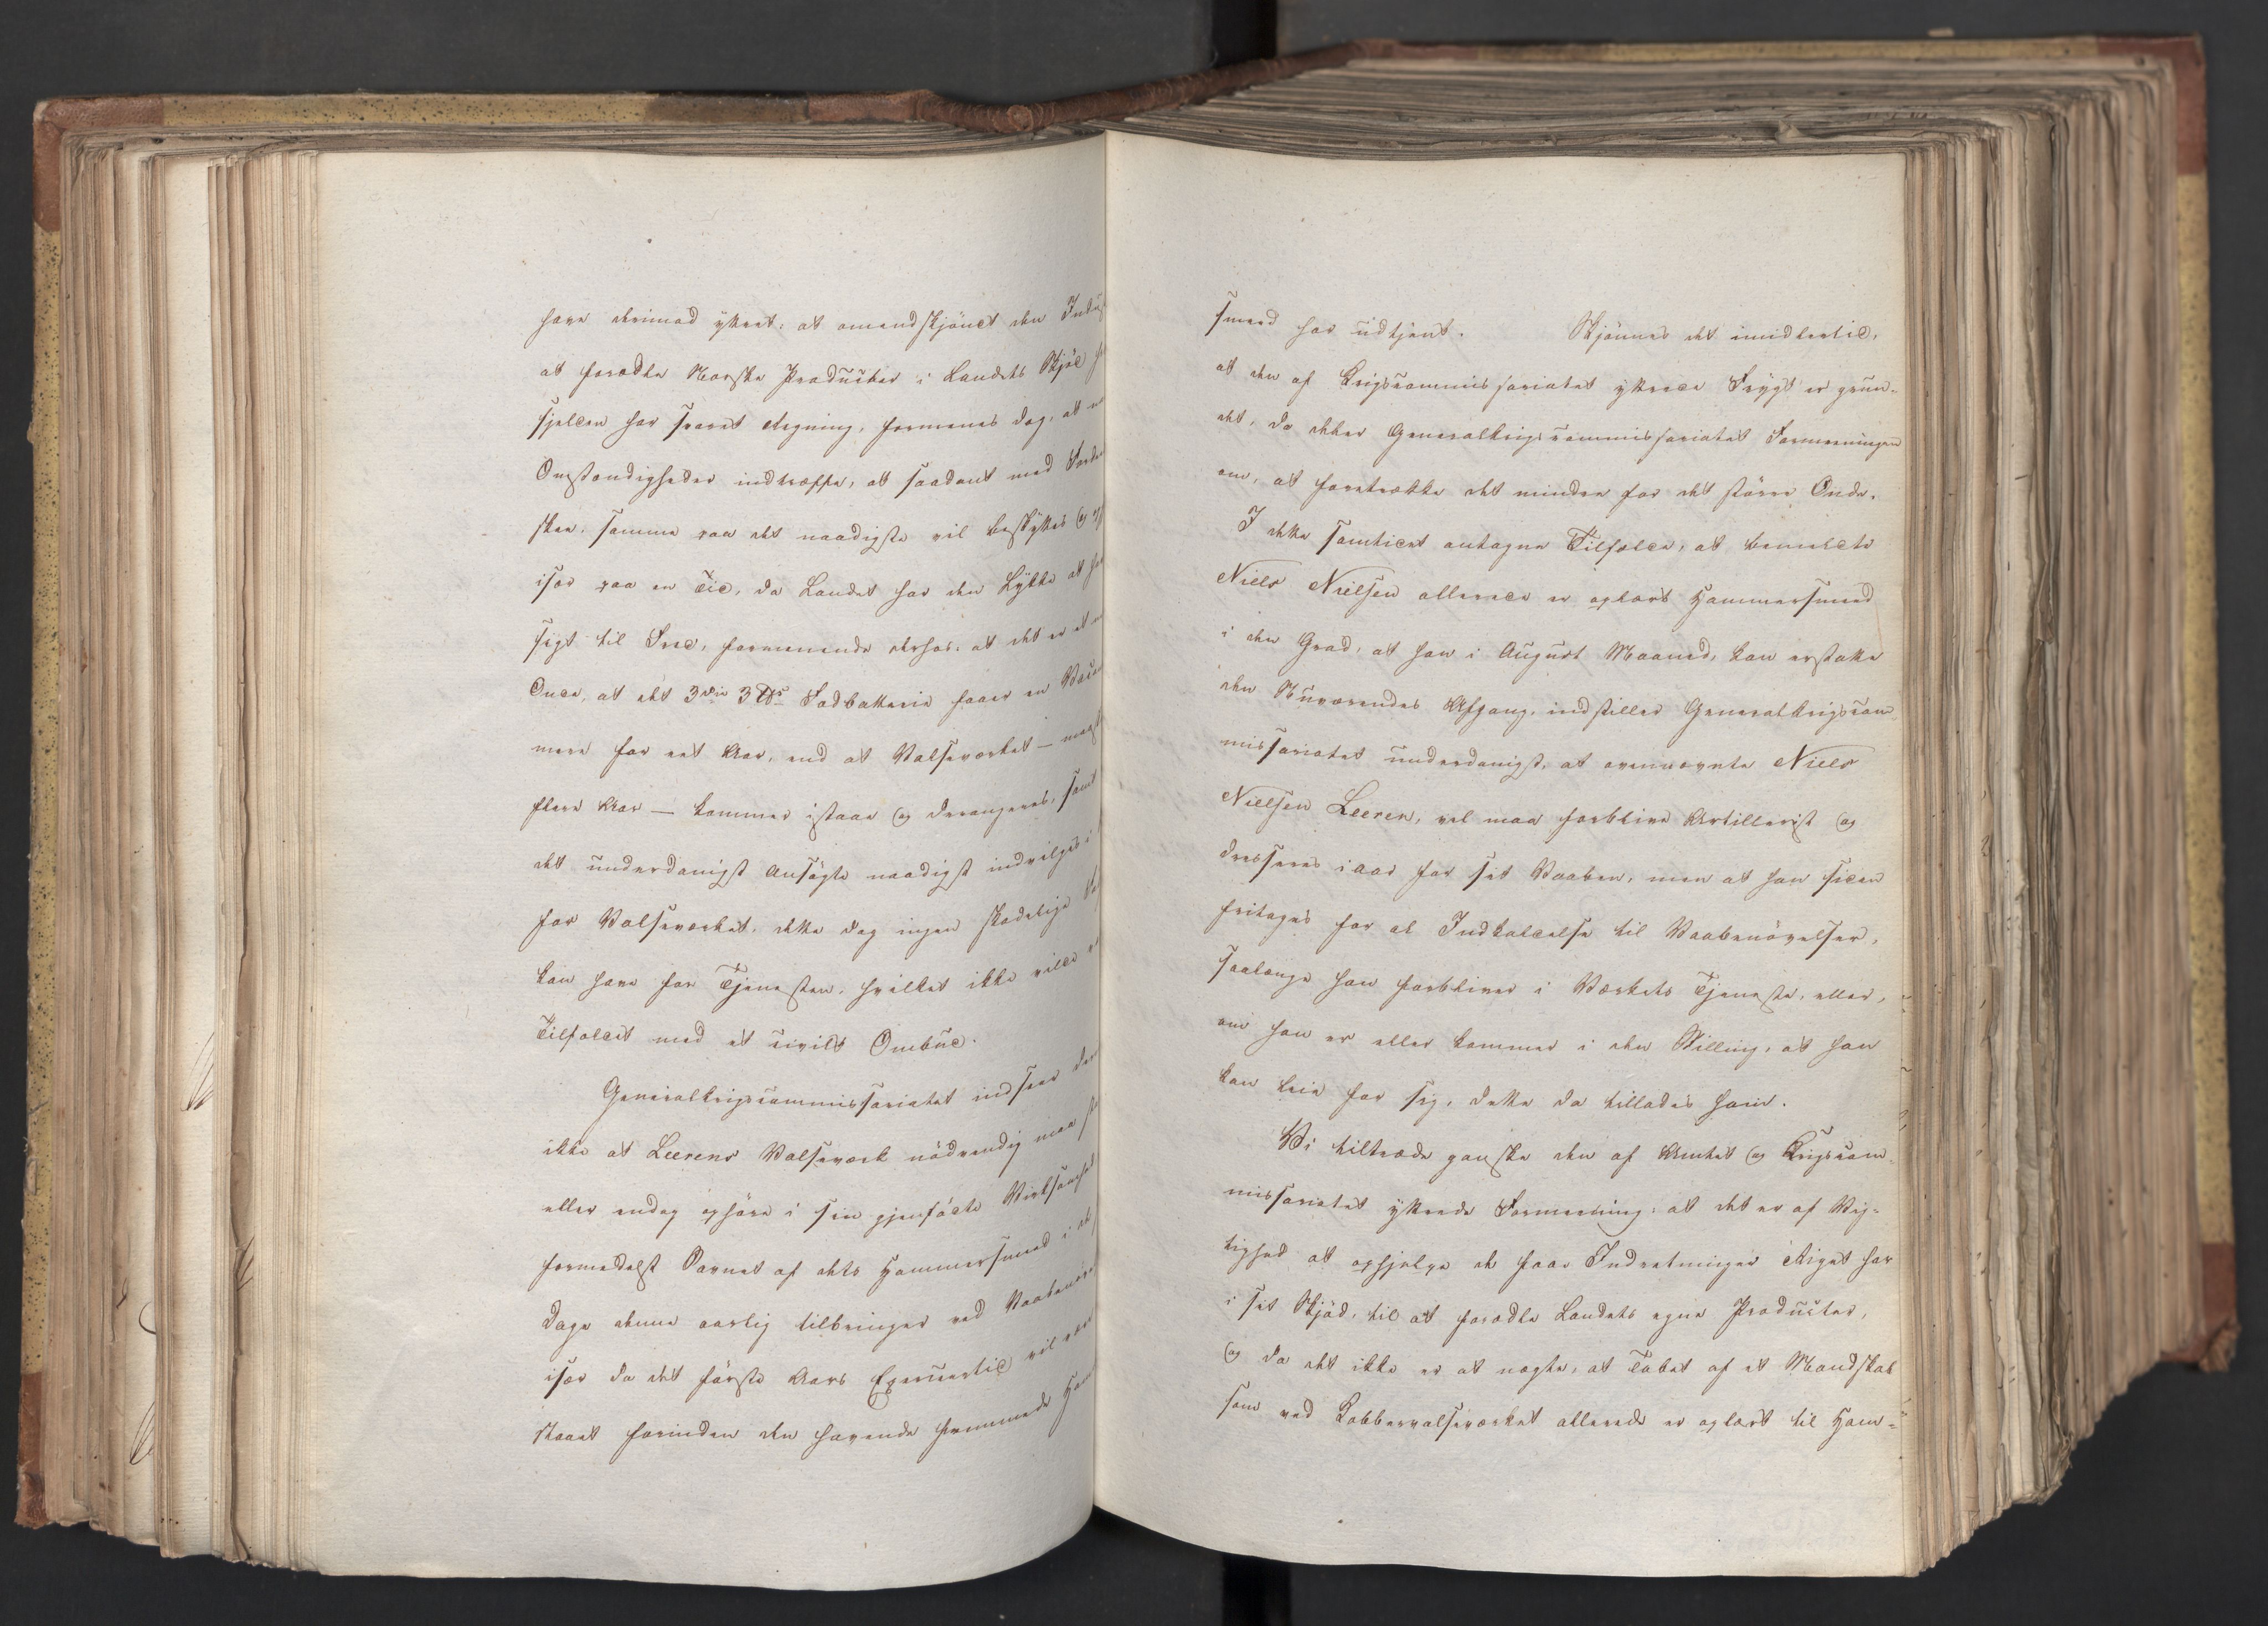 have derimod yttret, at omendskjönt den Indus
at forædle Norske Producter i Landets Skjöd h
sjelden har svaret Regning, formenes dog, at n
Omstændigheder indtræffe, at saadant med Fordeel
skee, samme paa det naadigste vil beskyttes og
især paa en Tid, da Landet har den Lykke at ha
sigt til Fred, formenende derhos: at det er et m
Onde, at det 3die 3 ₶s Fodbatterie faaer en Vacan
mere for eet Aar, end at Valseværket — maaske
flere Aar — kommer istaae og derangeres, samt
det underdanigst Ansögte naadigst indvilges i
for Valseværket, dette dog ingen skadelige Fø
kan have for Tjenesten, hvilket ikke vilde væ
Tilfældet med et civilt Ombud.
Generalkrigscommissariatet indseer der
ikke at Leerens Valseværk nödvendig maa sta
eller endog ophöre i sin gjenfödte Virksomhed
formedelst Savnet af dets Hammersmed i de
Dage denne aarlig tilbringer ved Vaabenöve
især da det förste Aars Exerceertid vil være
staaet forinden den havende fremmede Ham
smed har udtjent. Skjönnes det imidlertid,
at den af Krigscommissariatet yttrede Frygt er grun-
det, da deler Generalkrigscommissariatet Formeeningen
om, at foretrække det mindre for det större Onde.
I dette samtidet antagne Tilfælde, at bemeldte
Niels Nielsen allerede er oplært Hammersmed
i den Grad, at han i August Maaned, kan erstatte
den Nuværendes Afgang, indstiller Generalkrigscom-
missariatet underdanigst, at ovennævnte Niels
Nielsen Leeren, vel maa forblive Artillerist og
dresseres iaar for sit Vaaben, men at han siden
fritages for al Indkaldelse til Vaabenövelser,
saalænge han forbliver i Værkets Tjeneste, eller,
om han er eller kommer i den Stilling, at han
kan leie for sig, dette da tillades ham.
Vi tiltræde ganske den af Amtet og Krigscom-
missariatet yttrede Formeening: at det er af Vig-
tighed at ophjelpe de faae Indretninger Riget har
i sit Skjöd, til at forædle Landets egne Producter,
og da det ikke er at nægte, at Tabet af et Mandskab
som ved Kobbervalseværket allerede er oplært til Ham-